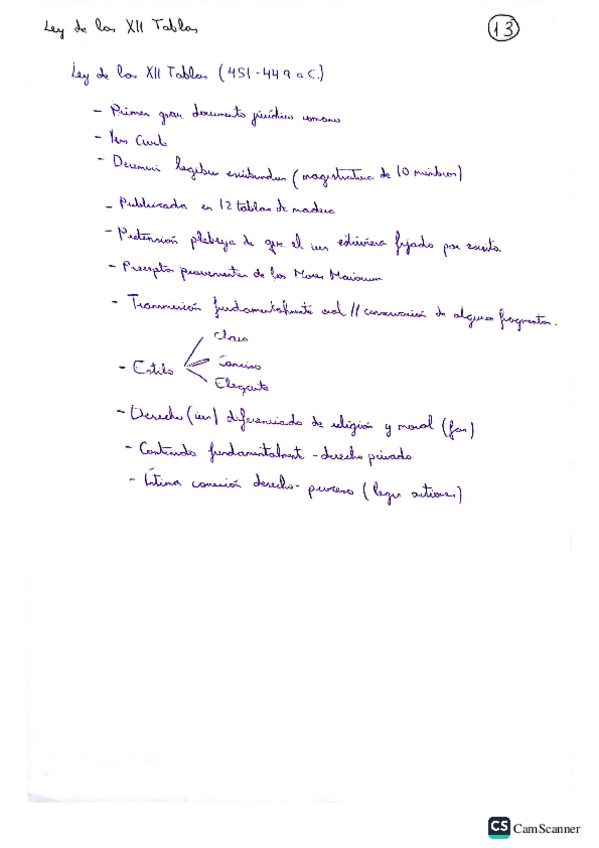 Ley de las XII Tablas
13
Ley de las XII Tablas (451-449 a.C.)
- Primer gran documento jurídico romano
- Ius Civile
- Decemviri legibus escribundus (magistratura de 10 miembros)
- Publicada en 12 tablas de madera
- Pretensión plebeya de que el ius estuviera fijado por escrito.
- Preceptos provenientes de los Mores Maiorum
- Transmisión fundamentalmente oral // conservación de algunos fragmentos.
Claro
- Estilo Conciso
Elegante
- Derecho (ius) diferenciado de religión y moral (fas)
- Contenido fundamentalmente - derecho privado
- Íntima conexión derecho - proceso (legis actiones)
CS CamScanner